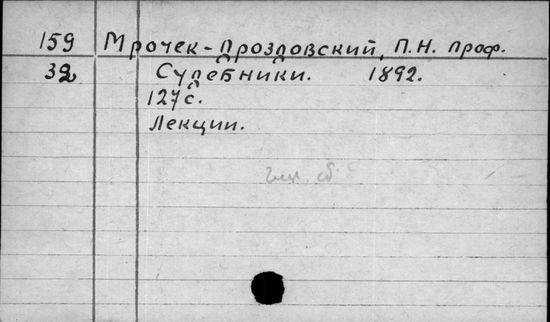 159 Мрочек-Дроздовский, П.Н. проф.
32 Судебники. 1892.
127 с.
Лекции.